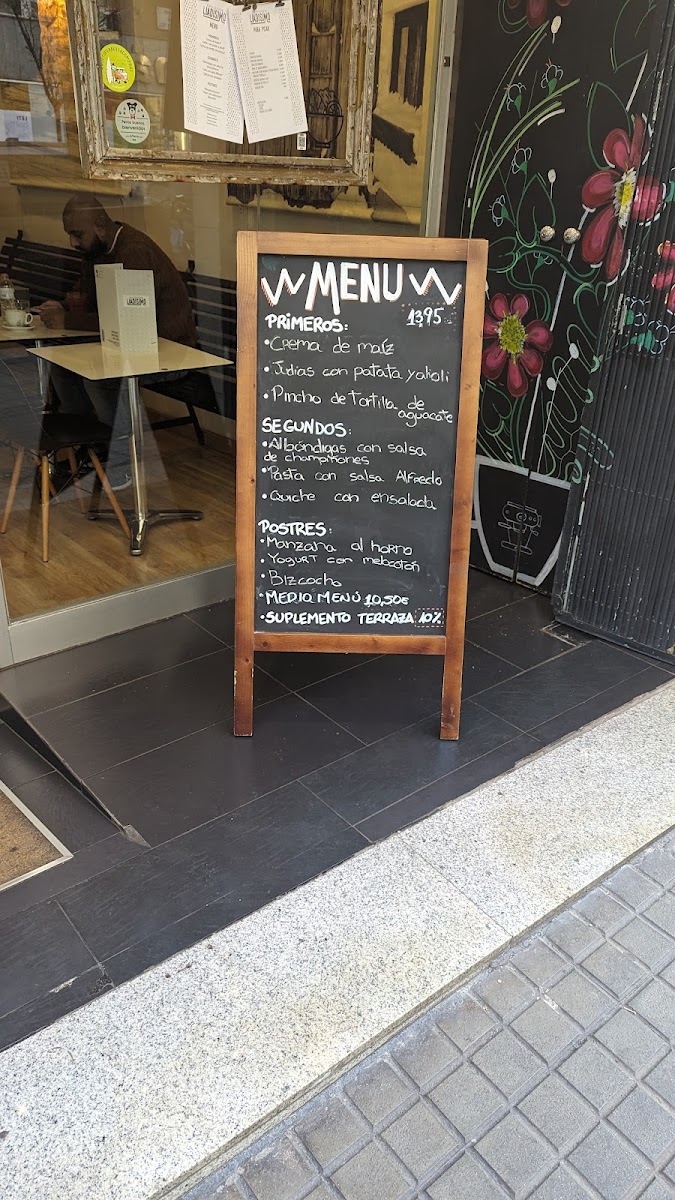 LINDISIMO
MENU
LINDISIMO
PARA PICAR
LINDISIMO
MENU
13,95
PRIMEROS:
•Crema de maíz
•Judias con patata y alioli
•Pincho de Tortilla de
aguacate
SEGUNDOS:
•Albóndigas con salsa
de champiñones
•Pasta con salsa Alfredo
•Quiche con ensalada
POSTRES:
•Manzana al horno
•Yogurt con melocotón
•Bizcocho
•MEDIO MENÚ 10,50€
•SUPLEMENTO TERRAZA 10%